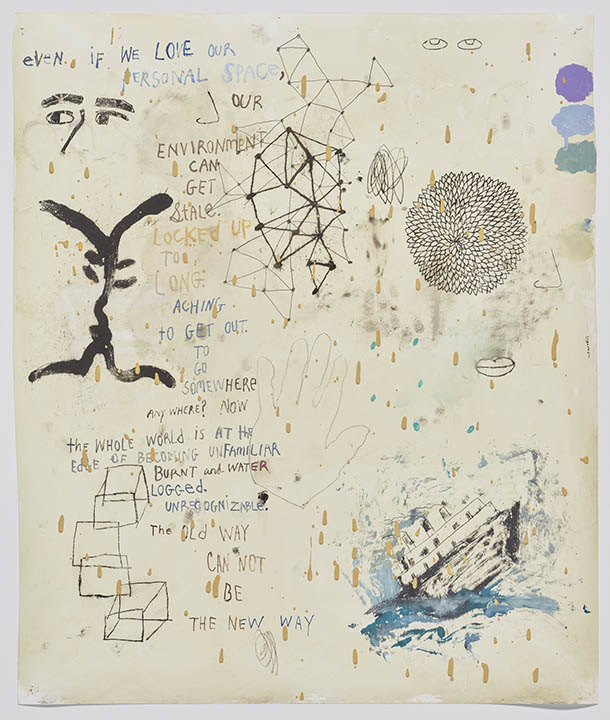 even. if WE LOVE OUR
PERSONAL SPACE,
OUR
ENVIRONMENT
CAN
GET
Stale.
LOCKED UP
TOO
LONG.
ACHING
to GET OUT.
TO
GO
SOMEWHERE
ANY WHERE? NOW
the WHOLE WORLD IS AT the
EDGE OF BECOMING UNFAMILIAR
BURNT and WATER
LOGGED.
UNRECOGNIZABLE.
The OLD WAY
CAN NOT
BE
THE NEW WAY